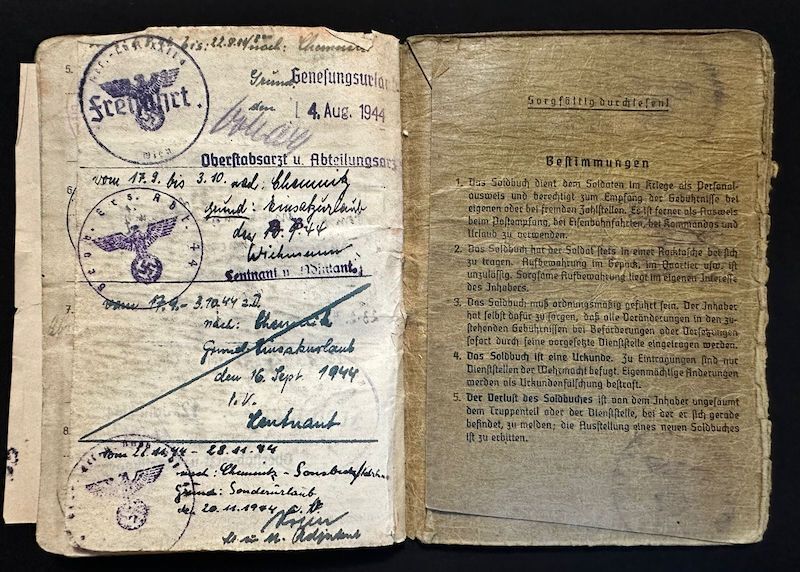 5.
bis: 22.8.44 nach: Chemnitz
Grund: Genesungsurlaub
den 14. Aug. 1944
Freifahrt.
Wien
Oberstabsarzt u. Abteilungsarzt
6.
vom 17.9. bis 3.10. nach: Chemnitz
Grund: Einsatzurlaub
den
Wiehmann
Leutnant u. Adjutant
7.
vom 17.9. - 3.10.44
nach: Chemnitz
Grund: Einsatzurlaub
den 16. Sept. 1944
I.V.
Leutnant
8.
vom 22.11.44 - 28.11.44
nach: Chemnitz -
Grund: Sonderurlaub
den 20.11.1944
Lt. u. Adjutant
Sorgfältig durchlesen!
Bestimmungen
1. Das Soldbuch dient dem Soldaten im Kriege als Personal-
ausweis und berechtigt zum Empfang der Gebührnisse bei
eigenen oder bei fremden Zahlstellen. Es ist ferner als Ausweis
beim Postempfang, bei Eisenbahnfahrten, bei Kommandos und
Urlaub zu verwenden.
2. Das Soldbuch hat der Soldat stets in einer Rocktasche bei sich
zu tragen. Aufbewahrung im Gepäck, im Quartier usw. ist
unzulässig. Sorgsame Aufbewahrung liegt im eigenen Interesse
des Inhabers.
3. Das Soldbuch muß ordnungsmäßig geführt sein. Der Inhaber
hat selbst dafür zu sorgen, daß alle Veränderungen in den zu-
stehenden Gebührnissen bei Beförderungen oder Versetzungen
sofort durch seine vorgesetzte Dienststelle eingetragen werden.
4. Das Soldbuch ist eine Urkunde. Zu Eintragungen sind nur
Dienststellen der Wehrmacht befugt. Eigenmächtige Änderungen
werden als Urkundenfälschung bestraft.
5. Der Verlust des Soldbuches ist von dem Inhaber ungesäumt
dem Truppenteil oder der Dienststelle, bei der er sich gerade
befindet, zu melden; die Ausstellung eines neuen Soldbuches
ist zu erbitten.